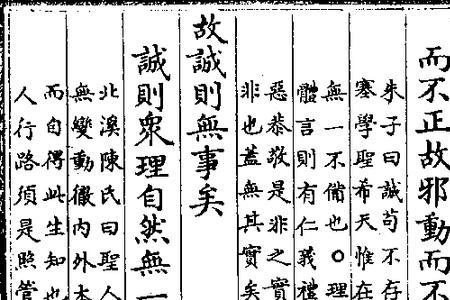 而不正故邪動而不
朱子曰誠苟不存
塞學聖希天惟在
無一不備也○理
體言則有仁義禮
惡恭敬是非之實
非也蓋無其實矣
故誠則無事矣
誠則衆理自然無一
北溪陳氏曰聖人
無變動徹内外本
而自得此生知也
人行路須是照管